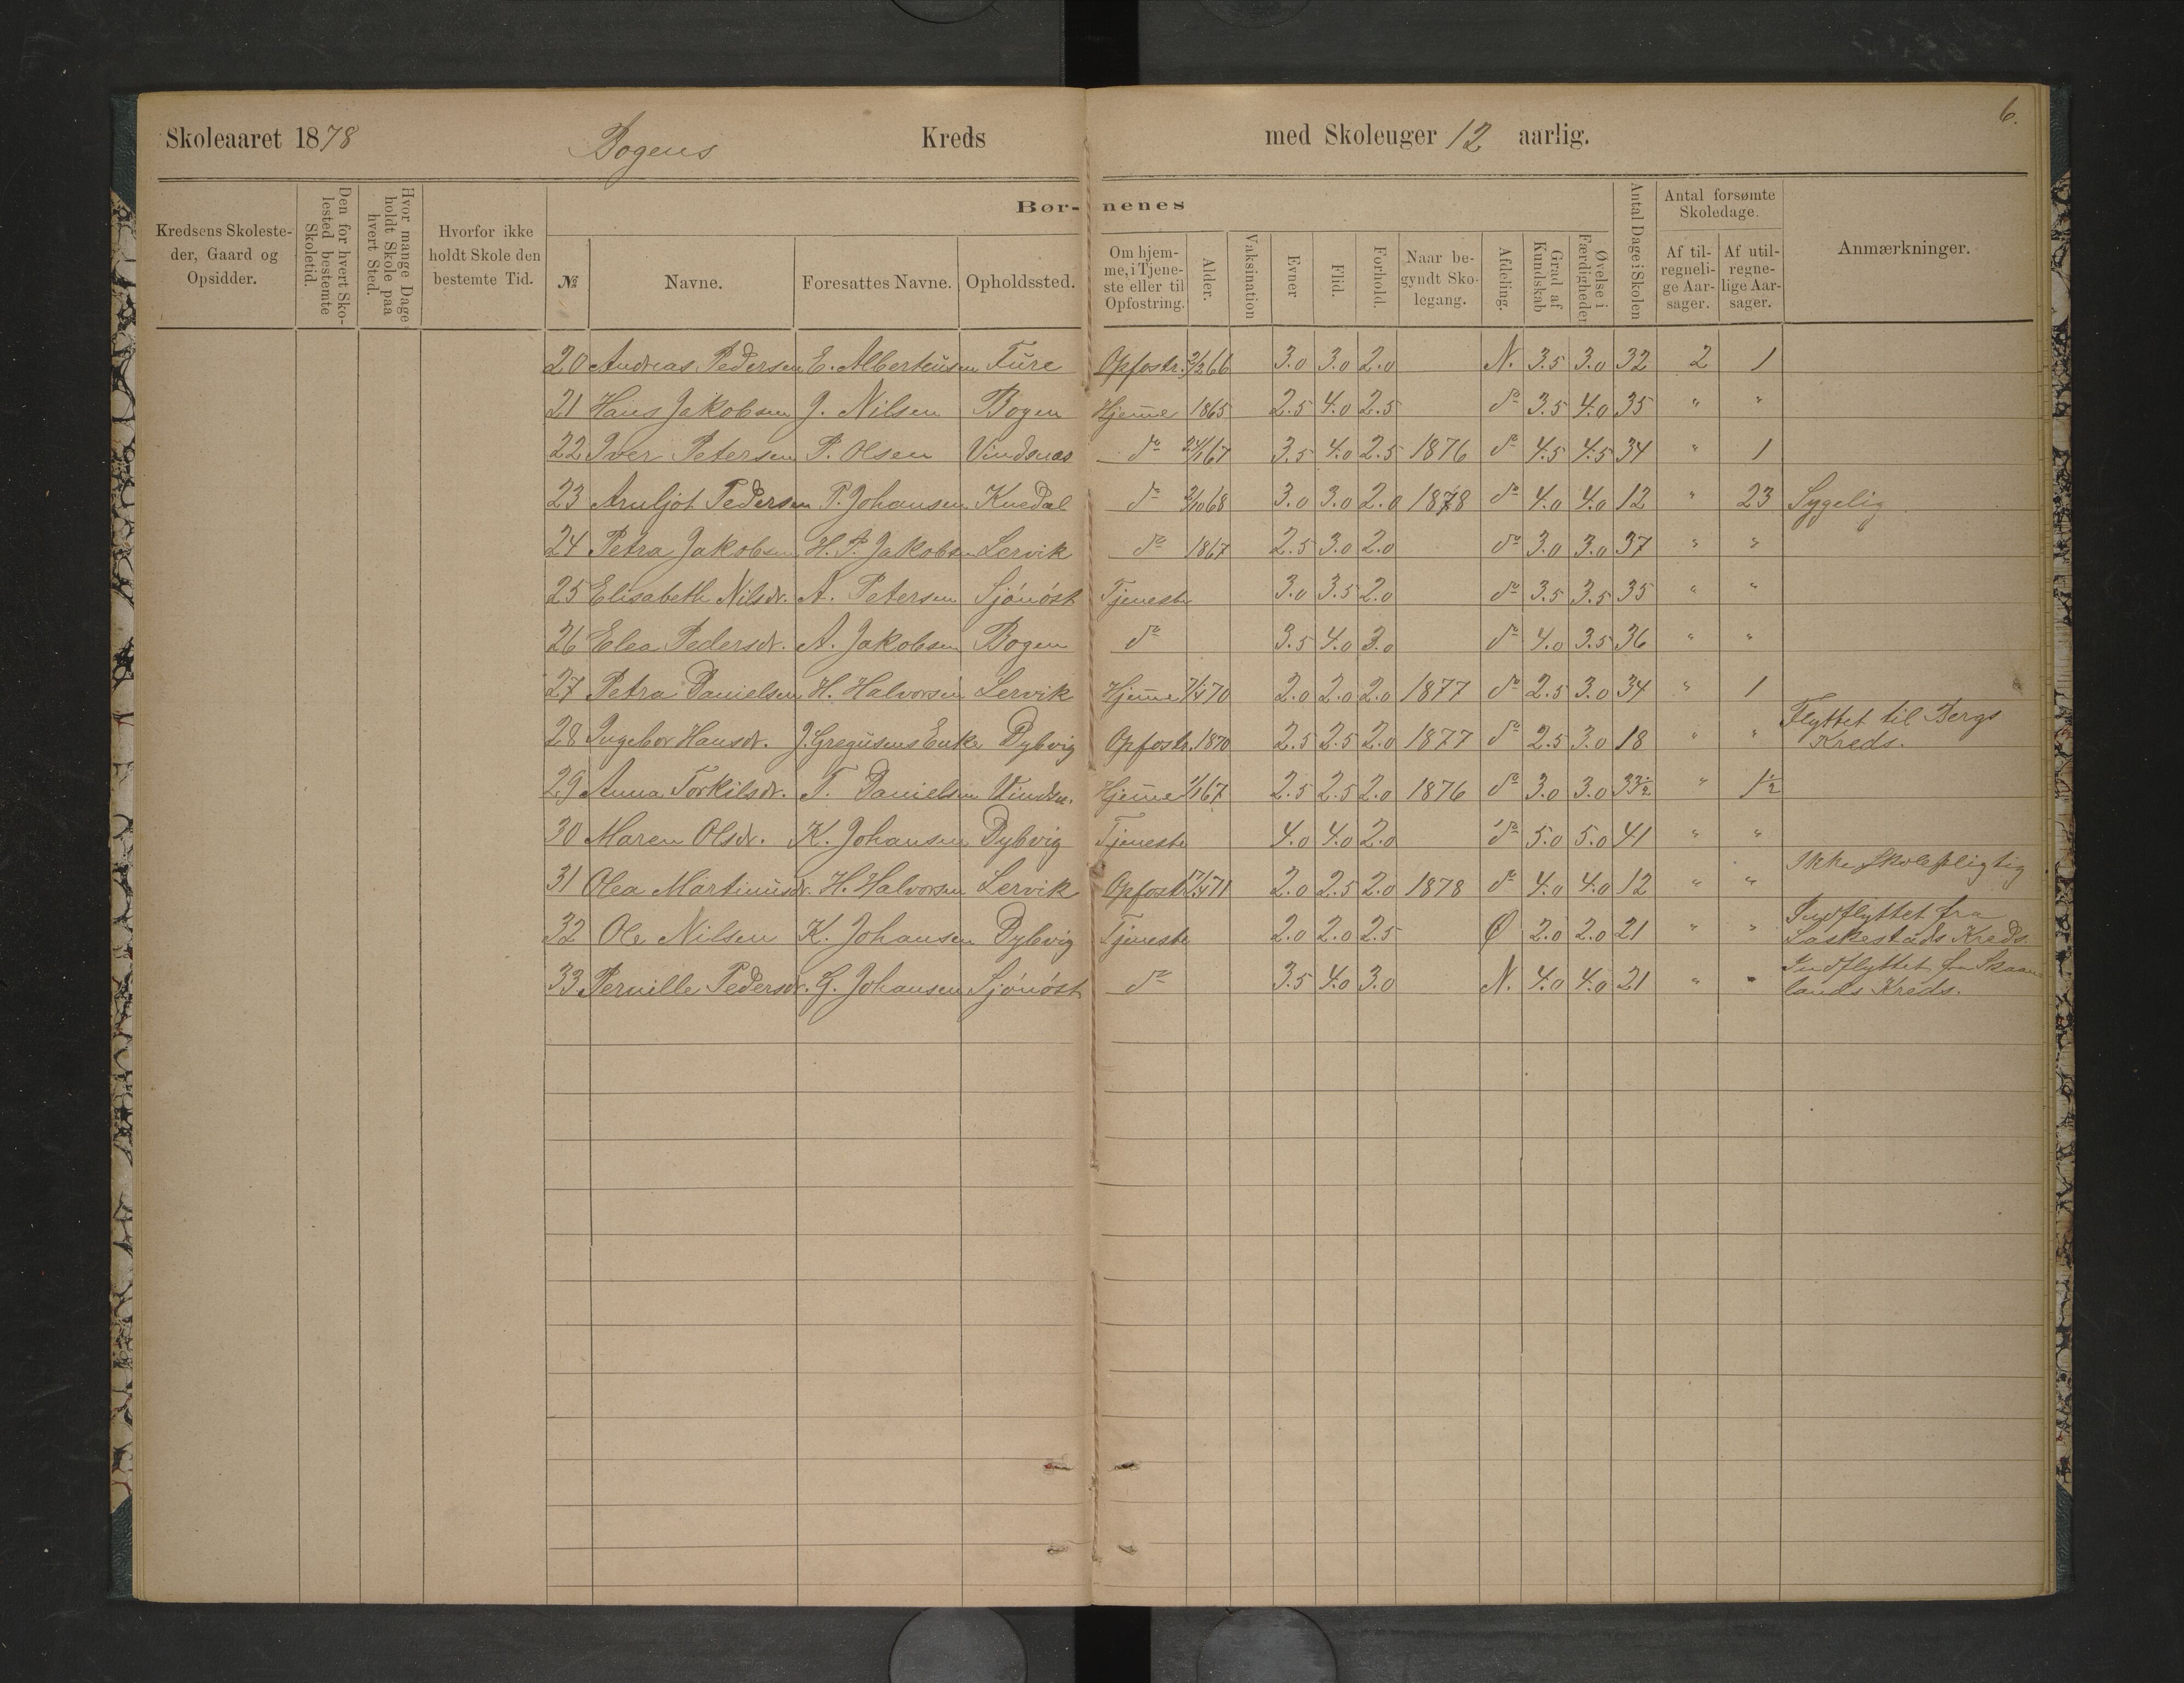 6.
Skoleaaret 1878 Bogens Kreds med Skoleuger 12 aarlig.
Kredsens Skolesteder, Gaard og Opsidder.
Den for hvert Skolested bestemte Skoletid.
Hvor mange Dage holdt Skole paa hvert Sted.
Hvorfor ikke holdt Skole den bestemte Tid.
Bør- nenes
№ Navne. Foresattes Navne. Opholdssted.
Om hjemme, i Tjeneste eller til Opfostring.
Alder.
Vaksination
Evner
Flid.
Forhold.
Naar begyndt Skolegang.
Afdeling.
Grad af Kundskab
Øvelse i Færdigheder
Antal Dage i Skolen
Antal forsømte Skoledage.
Af tilregnelige Aarsager.
Af utilregnelige Aarsager.
Anmærkninger.
20 Andreas Pedersen E. Alberteusen Fure Opfostr. 2/2 66 3.0 3.0 2.0 N. 3.5 3.0 32 2 1
21 Hans Jakobsen J. Nilsen Bogen Hjemme 1865 2.5 4.0 2.5 do 3.5 4.0 35 " "
22 Iver Petersen P. Olsen Vindsnæs do 24/1 67 3.5 4.0 2.5 1876 do 4.5 4.5 34 " 1
23 Arnljot Pedersen P. Johansen Knedal do 2/10 68 3.0 3.0 2.0 1878 do 4.0 4.0 12 " 23 Sygelig
24 Petra Jakobsen H. P. Jakobsen Lervik do 1867 2.5 3.0 2.0 do 3.0 3.0 37 " "
25 Elisabeth Nilsdr. A. Petersen Sjønøst Tjeneste 3.0 3.5 2.0 do 3.5 3.5 35 " "
26 Elea Pedersdr. A. Jakobsen Bogen do 3.5 4.0 3.0 do 4.0 3.5 36 " "
27 Petra Danielsen H. Halvorsen Lervik Hjemme 7/4 70 2.0 2.0 2.0 1877 do 2.5 3.0 34 " 1
28 Ingebor Hansdr. J. Gregusens Enke Dybvig Opfostr. 1870 2.5 2.5 2.0 1877 do 2.5 3.0 18 " " Flyttet til Bergs
Kreds.
29 Anna Torkilsdr. T. Danielsen Vindsn. Hjemme 1/1 67 2.5 2.5 2.0 1876 do 3.0 3.0 33½ " 1½
30 Maren Olsdr. K. Johansen Dybvig Tjeneste 4.0 4.0 2.0 do 5.0 5.0 41 " "
31 Olea Martinusdr. H. Halvorsen Lervik Opfostr. 17/4 71 2.0 2.5 2.0 1878 do 4.0 4.0 12 " " Ikke skolepligtig
32 Ole Nilsen K. Johansen Dybvig Tjeneste 2.0 2.0 2.5 Ø 2.0 2.0 21 " " Indflyttet fra
Laskestads Kreds.
33 Pernille Pedersdr. G. Johansen Sjønøst do 3.5 4.0 3.0 N. 4.0 4.0 21 " " Indflyttet fra Skaan-
lands Kreds.